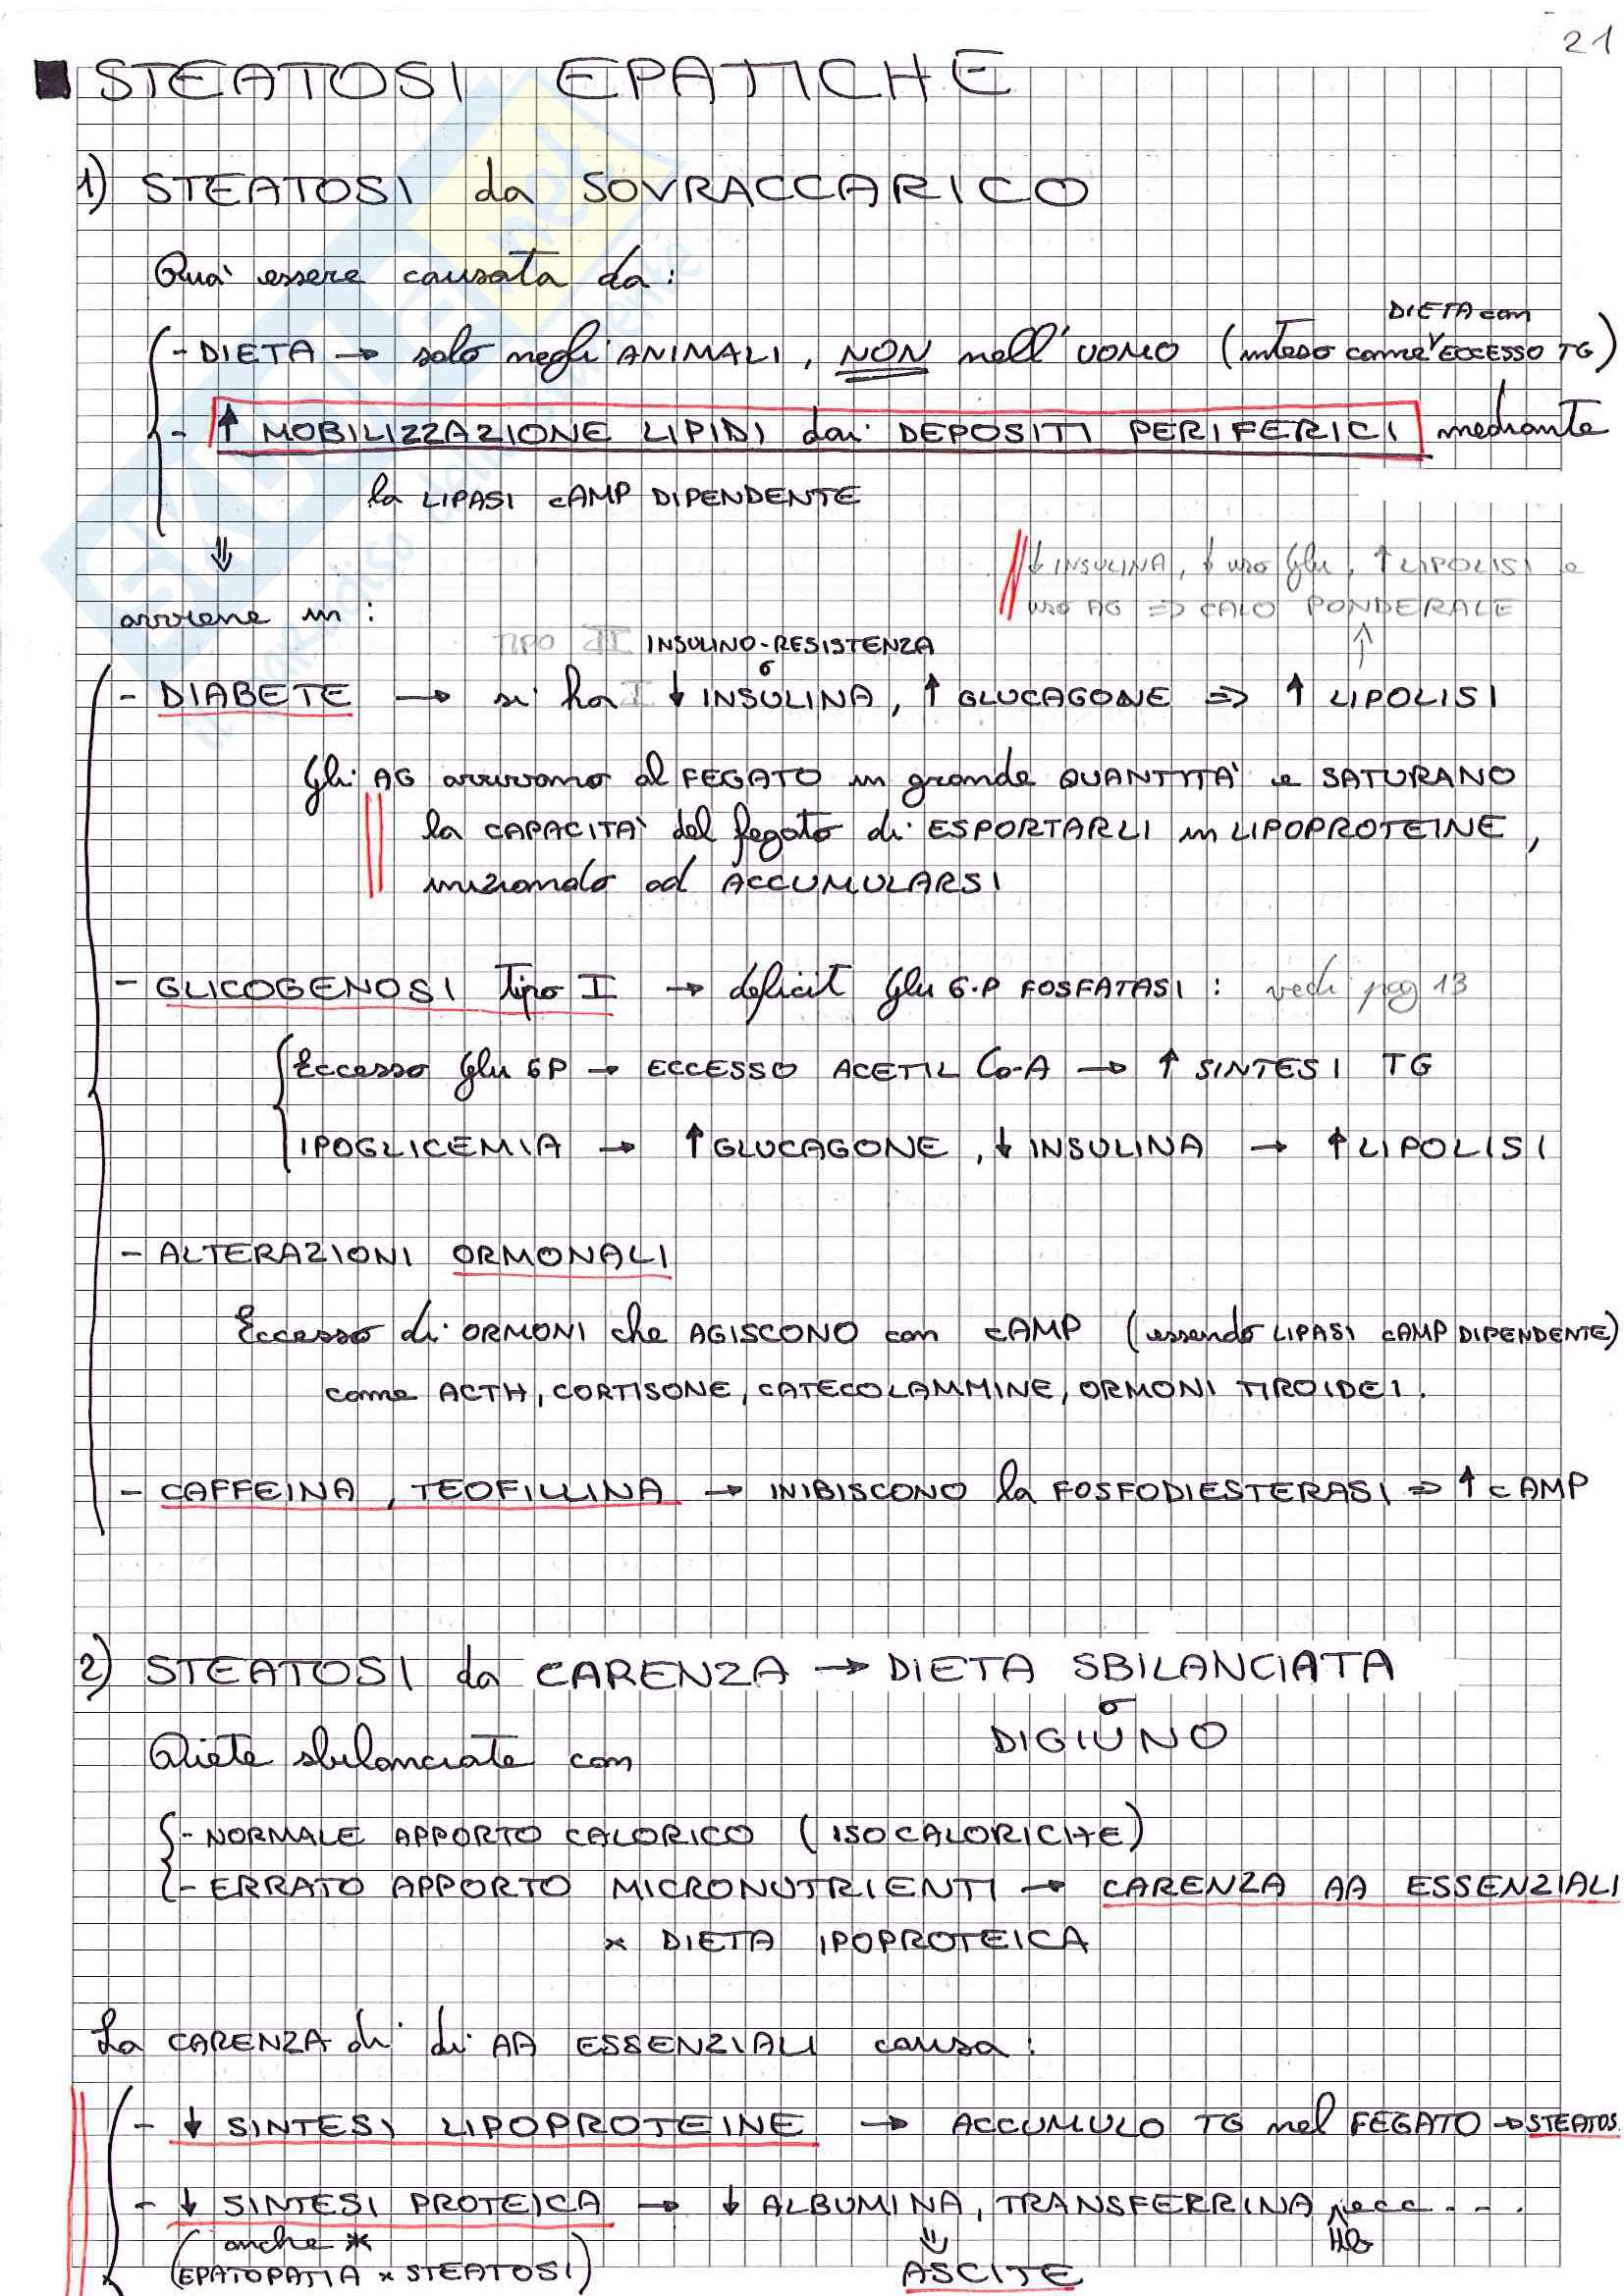 21
STEATOSI EPATICHE
1) STEATOSI da SOVRACCARICO
Può essere causata da:
DIETA con
- DIETA → solo negli ANIMALI, NON nell'UOMO (inteso come ECCESSO TG)
- ↑ MOBILIZZAZIONE LIPIDI dai DEPOSITI PERIFERICI mediante
la LIPASI cAMP DIPENDENTE
⇓
↓ INSULINA, ↓ uso Glu, ↑ LIPOLISI e
avviene in:
uso AG => CALO PONDERALE
TIPO II INSULINO-RESISTENZA
↑
o
- DIABETE → si ha I ↓ INSULINA, ↑ GLUCAGONE => ↑ LIPOLISI
Gli AG arrivano al FEGATO in grande QUANTITA' e SATURANO
la CAPACITA' del fegato di ESPORTARLI in LIPOPROTEINE,
iniziando ad ACCUMULARSI
- GLICOGENOSI Tipo I → deficit Glu 6-P FOSFATASI: vedi pag 13
Eccesso Glu 6P → ECCESSO ACETIL Co-A → ↑ SINTESI TG
IPOGLICEMIA → ↑ GLUCAGONE, ↓ INSULINA → ↑ LIPOLISI
- ALTERAZIONI ORMONALI
Eccesso di ORMONI che AGISCONO con cAMP (essendo LIPASI cAMP DIPENDENTE)
come ACTH, CORTISONE, CATECOLAMMINE, ORMONI TIROIDEI.
- CAFFEINA, TEOFILLINA → INIBISCONO la FOSFODIESTERASI => ↑ cAMP
2) STEATOSI da CARENZA → DIETA SBILANCIATA
o
DIGIUNO
Diete sbilanciate con
- NORMALE APPORTO CALORICO (ISOCALORICHE)
- ERRATO APPORTO MICRONUTRIENTI → CARENZA AA ESSENZIALI
x DIETA IPOPROTEICA
La CARENZA di di AA ESSENZIALI causa:
- ↓ SINTESI LIPOPROTEINE → ACCUMULO TG nel FEGATO → STEATOS.
- ↓ SINTESI PROTEICA → ↓ ALBUMINA, TRANSFERRINA, ecc - - .
(anche x
⇓
Hb
EPATOPATIA x STEATOSI)
ASCITE